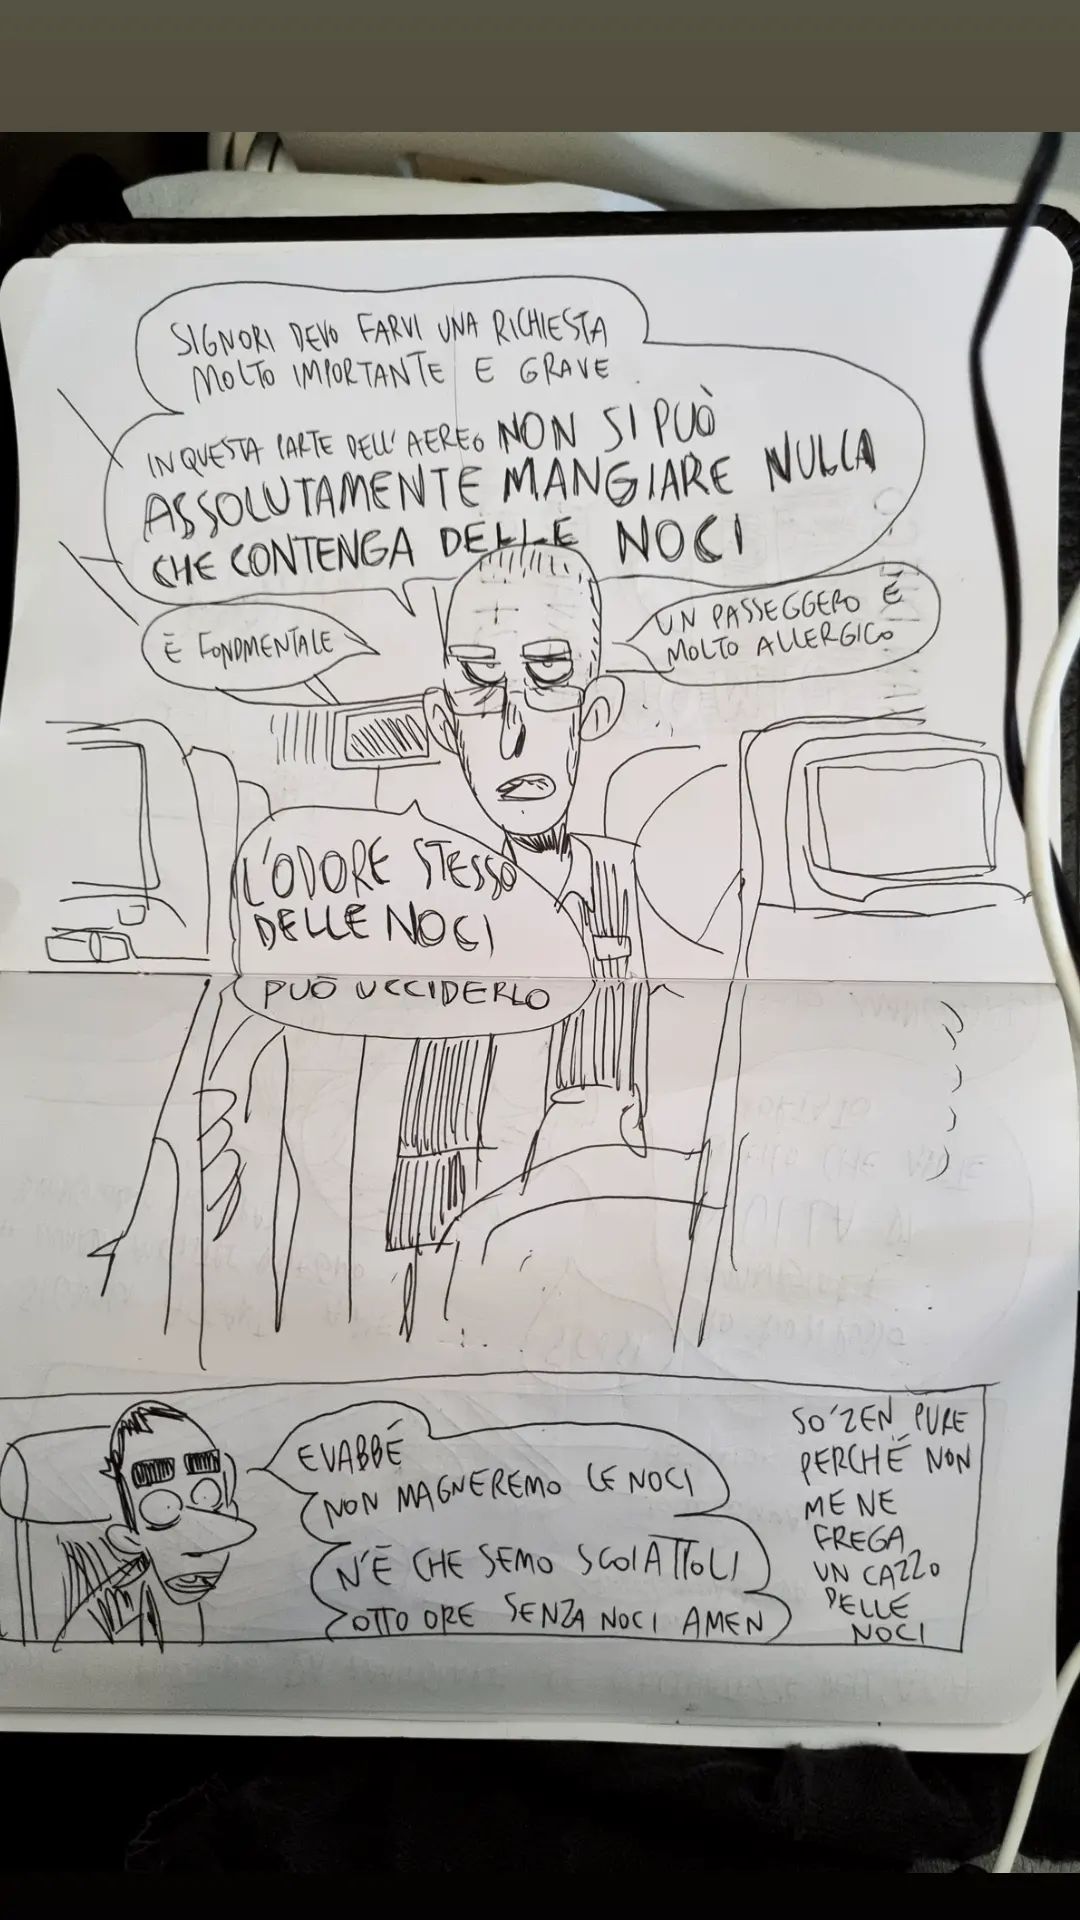 SIGNORI DEVO FARVI UNA RICHIESTA
MOLTO IMPORTANTE E GRAVE
IN QUESTA PARTE DELL'AEREO NON SI PUÒ
ASSOLUTAMENTE MANGIARE NULLA
CHE CONTENGA DELLE NOCI
È FONDMENTALE
UN PASSEGGERO È
MOLTO ALLERGICO
L'ODORE STESSO
DELLE NOCI
PUÒ UCCIDERLO
EVABBÉ
NON MAGNEREMO LE NOCI
N'È CHE SEMO SCOIATTOLI
OTTO ORE SENZA NOCI AMEN
SO' ZEN PURE
PERCHÉ NON
ME NE
FREGA
UN CAZZO
DELLE
NOCI